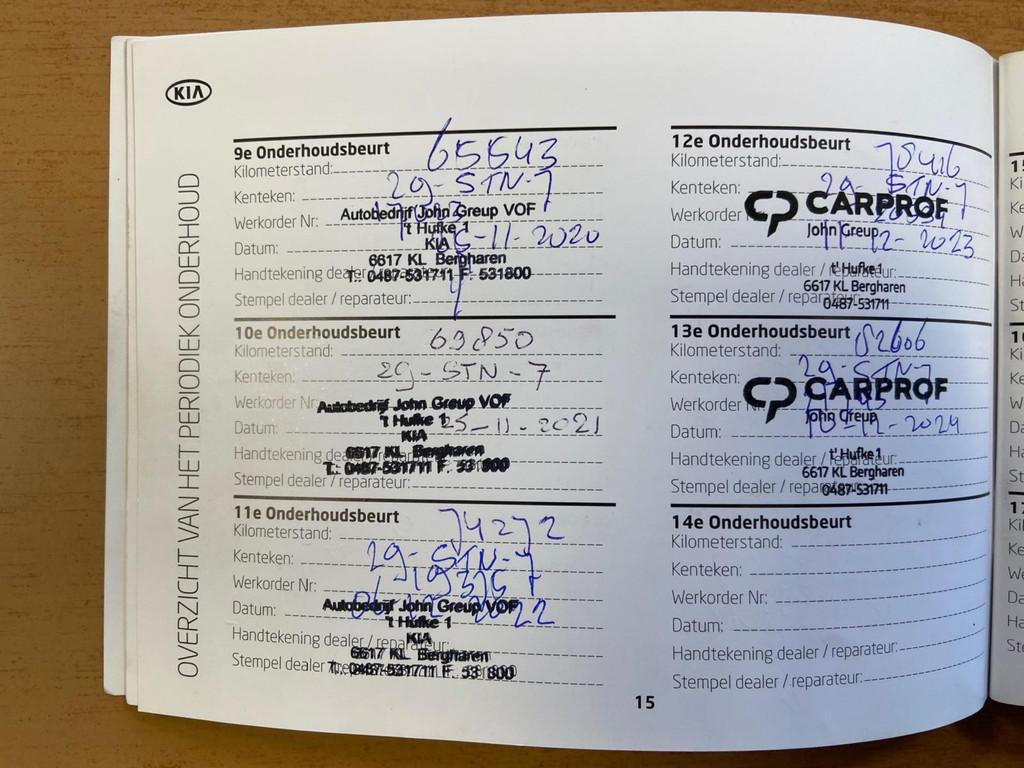 KIA
OVERZICHT VAN HET PERIODIEK ONDERHOUD
9e Onderhoudsbeurt
Kilometerstand: 65543
Kenteken: 29-STN-7
Werkorder Nr:
Autobedrijf John Greup VOF
't Hufke 1
KIA
Datum: 05-11-2020
6617 KL Bergharen
Handtekening dealer / reparateur:
T.: 0487-531711 F. 531800
Stempel dealer / reparateur:
10e Onderhoudsbeurt
Kilometerstand: 69850
Kenteken: 29-STN-7
Werkorder Nr:
Autobedrijf John Greup VOF
't Hufke 1
KIA
Datum: 25-11-2021
6617 KL Bergharen
Handtekening dealer / reparateur:
T.: 0487-531711 F. 53 800
Stempel dealer / reparateur:
11e Onderhoudsbeurt
Kilometerstand: 74272
Kenteken: 29-STN-7
Werkorder Nr:
Datum: 06-12-2022
Autobedrijf John Greup VOF
't Hufke 1
KIA
Handtekening dealer / reparateur:
6617 KL Bergharen
Stempel dealer / reparateur:
T.: 0487-531711 F. 53 800
12e Onderhoudsbeurt
Kilometerstand: 78416
Kenteken: 29-STN-7
Werkorder
CARPROF
John Greup
Datum: 11-12-2023
Handtekening dealer / reparateur:
't Hufke 1
6617 KL Bergharen
Stempel dealer / reparateur:
0487-531711
13e Onderhoudsbeurt
Kilometerstand: 82606
Kenteken: 29-STN-7
Werkorder Nr:
CARPROF
John Greup
Datum: 10-12-2024
Handtekening dealer / reparateur:
't Hufke 1
6617 KL Bergharen
Stempel dealer / reparateur:
0487-531711
14e Onderhoudsbeurt
Kilometerstand:
Kenteken:
Werkorder Nr:
Datum:
Handtekening dealer / reparateur:
Stempel dealer / reparateur:
15